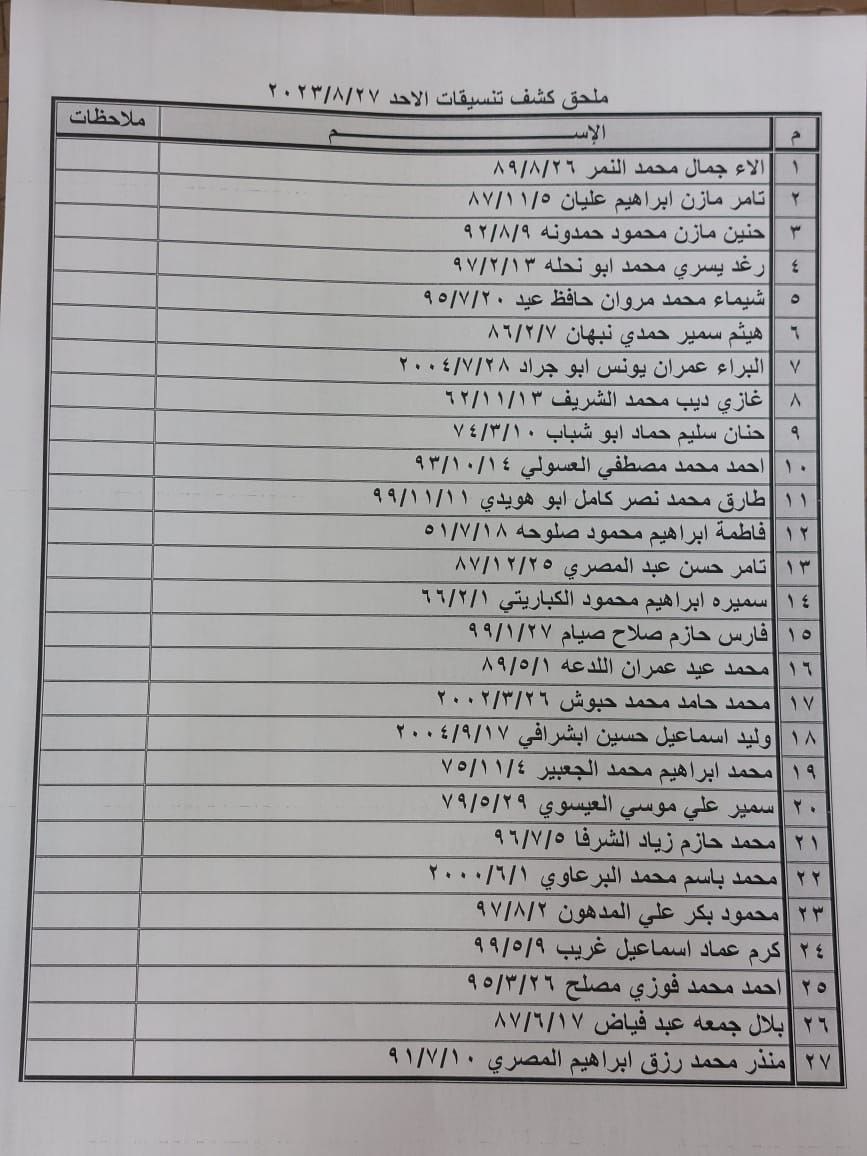 ملحق كشف تنسيقات الاحد ٢٠٢٣/٨/٢٧
م الإســـــــــم ملاحظات
١ الاء جمال محمد النمر ٨٩/٨/٢٦
٢ تامر مازن ابراهيم عليان ٨٧/١١/٥
٣ حنين مازن محمود حمدونه ٩٢/٨/٩
٤ رغد يسري محمد ابو نحله ٩٧/٢/١٣
٥ شيماء محمد مروان حافظ عيد ٩٥/٧/٢٠
٦ هيثم سمير حمدي نبهان ٨٦/٢/٧
٧ البراء عمران يونس ابو جراد ٢٠٠٤/٧/٢٨
٨ غازي ديب محمد الشريف ٦٢/١١/١٣
٩ حنان سليم حماد ابو شباب ٧٤/٣/١٠
١٠ احمد محمد مصطفي العسولي ٩٣/١٠/١٤
١١ طارق محمد نصر كامل ابو هويدي ٩٩/١١/١١
١٢ فاطمة ابراهيم محمود صلوحه ٥١/٧/١٨
١٣ تامر حسن عبد المصري ٨٧/١٢/٢٥
١٤ سميره ابراهيم محمود الكباريتي ٦٦/٢/١
١٥ فارس حازم صلاح صيام ٩٩/١/٢٧
١٦ محمد عيد عمران اللدعه ٨٩/٥/١
١٧ محمد حامد محمد حبوش ٢٠٠٢/٣/٢٦
١٨ وليد اسماعيل حسين ابشرافي ٢٠٠٤/٩/١٧
١٩ محمد ابراهيم محمد الجعبير ٧٥/١١/٤
٢٠ سمير علي موسي العيسوي ٧٩/٥/٢٩
٢١ محمد حازم زياد الشرفا ٩٦/٧/٥
٢٢ محمد باسم محمد البرعاوي ٢٠٠٠/٦/١
٢٣ محمود بكر علي المدهون ٩٧/٨/٢
٢٤ كرم عماد اسماعيل غريب ٩٩/٥/٩
٢٥ احمد محمد فوزي مصلح ٩٥/٣/٢٦
٢٦ بلال جمعه عبد فياض ٨٧/٦/١٧
٢٧ منذر محمد رزق ابراهيم المصري ٩١/٧/١٠